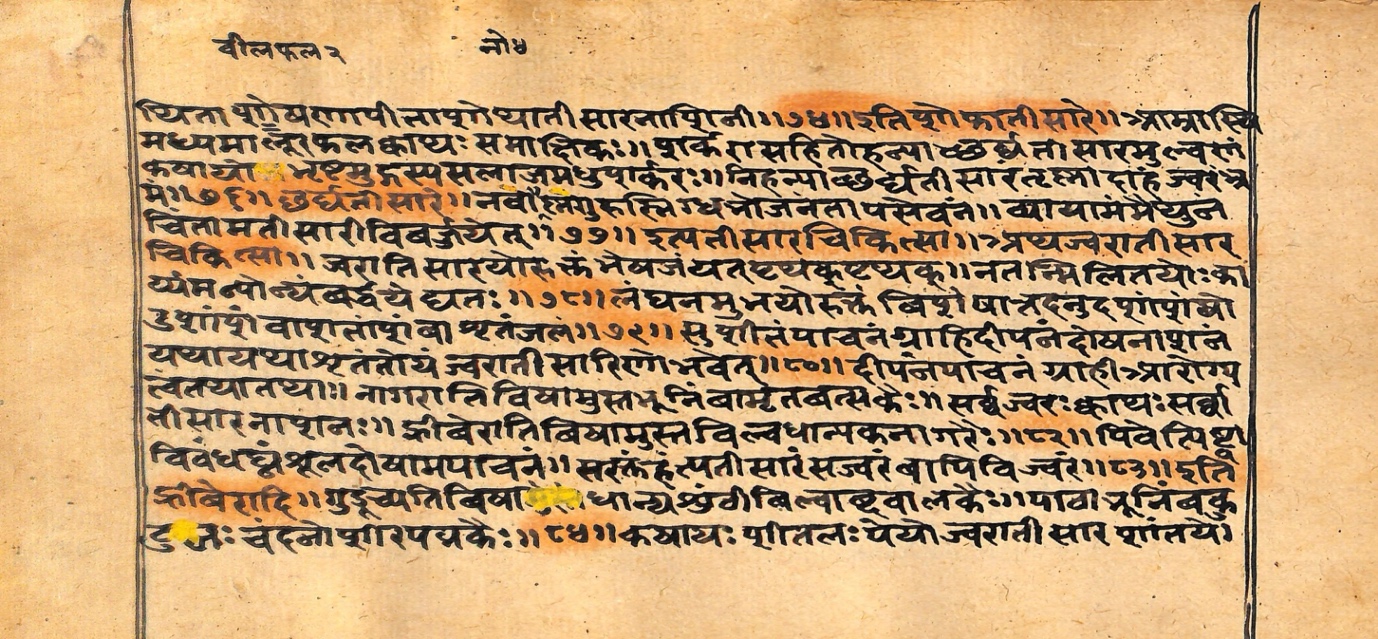 वीलफल२ नो४
थिता पुगेषरगापी नापुगे थाती सारनाशिनी॥७४॥इति पुगे फाती सारे॥आम्रास्थि
मध्यमालूरफलक्वाथः समाक्षिकः॥शर्करासहितोहन्याच्छर्द्यतीसारमुल्वणं
कषायो भृष्टमुद्गस्यसलाजमधुशर्करः॥निहन्याच्छर्द्यतीसारतृष्णांदाहंज्वरंभ्र
मं॥७६॥छर्द्यतीसारे॥नवौष्णंगुरुस्निग्धभोजनतापसेवनं॥व्यायामंमैथुन
चिंतामतीसारीविवर्ज्जयेत्॥७७॥इत्यतीसारचिकित्सा॥अथज्वरातीसार
चिकित्सा॥ज्वरातिसारयोरुक्तंभैषजंयत्पृथक्पृथक्॥नतन्मिलितयोःका
र्य्यमन्योन्यंवर्द्धयेद्यतः॥७८॥लंघनमुभयोरुक्तं
शृतंजलं॥७९॥सुशीतंपाचनंग्राहिदीपनंदोषनाशनं
यथायथाशृतंतोयंज्वरातीसारिणोभवेत्॥८०॥दीपनंपाचनंग्राहीआरोग्य
त्वंतथातथा॥नागरातिविषामुस्तभूनिंबामृतवत्सकैः॥सर्व्वज्वरःक्वाथःसर्व्वा
तीसारनाशनः॥ह्रीवेरातिविषामुस्तविल्वधान्यकनागरैः॥८२॥पिवेत्पिछा
विवंधघ्नंशूलदोषामपाचनं॥सरक्तंहंत्यतीसारंसज्वरंवापिविज्वरं॥८३॥इति
ह्रीवेरादि॥गुडूच्यतिविषा धान्यशुंठीविल्वाब्दवालकैः॥पाठाभूनिंबकु
चंदनोशीरपद्मकैः॥८४॥कषायःशीतलःपेयोज्वरातीसारशांतये।